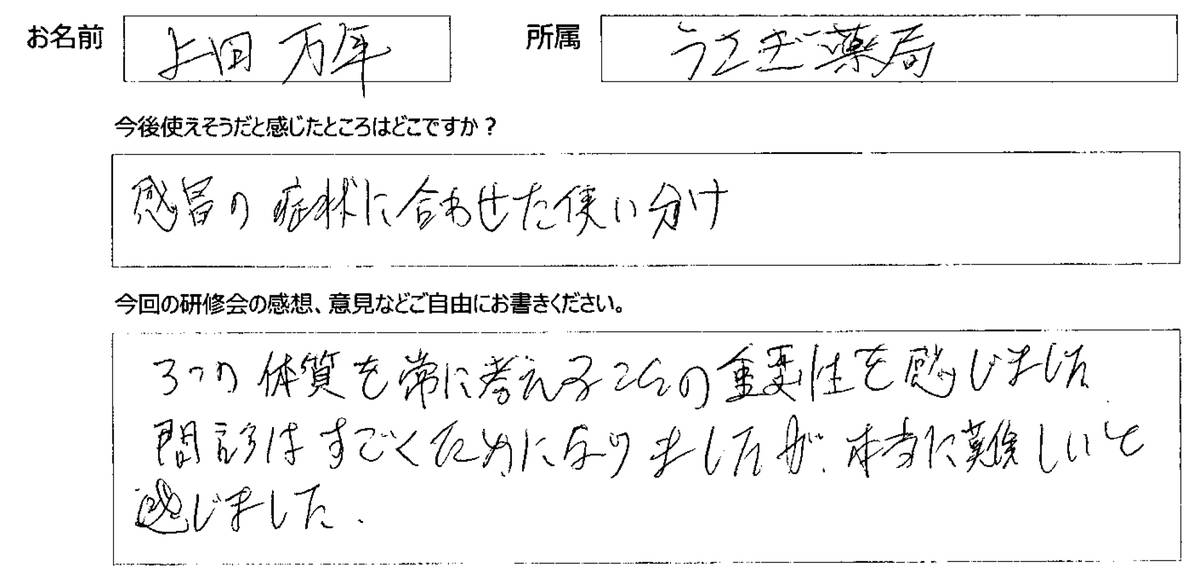 お名前 上田 万年 所属 うさぎ薬局
今後使えそうだと感じたところはどこですか？
感冒の症状に合わせた使い分け
今回の研修会の感想、意見などご自由にお書きください。
3つの体質を常に考えることの重要性を感じました
問診はすごくためになりましたが、本当に難しいと
感じました.